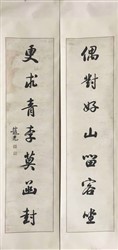 偶對好山留客坐
更求青李莫函封